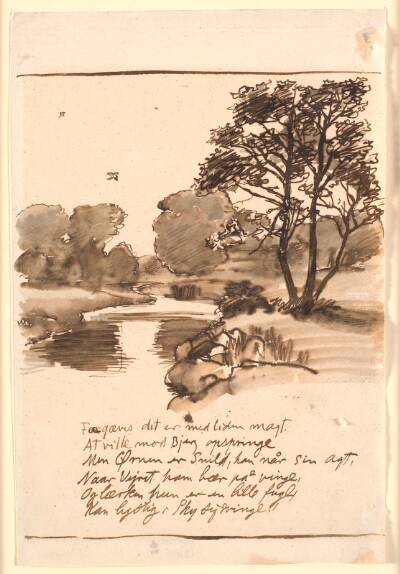 Forgæves dit er med liden magt.
At ville mod Bjerg opspringe
Men Ørnen er Snild, han når sin agt,
Naar Vejret ham bær på vinge,
Og lærken hun er en lille fugl,
Kan lystig i Sky sig svinge.